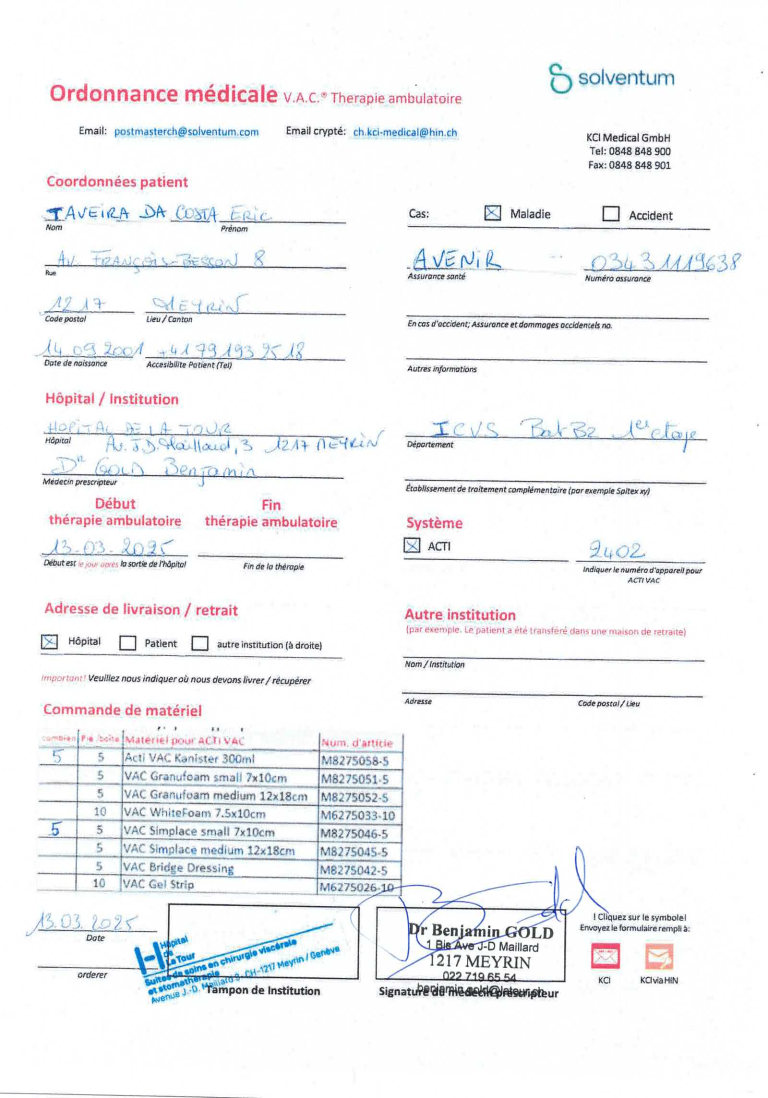 solventum
Ordonnance médicale V.A.C.® Therapie ambulatoire
Email: postmasterch@solventum.com Email crypté: ch.kci-medical@hin.ch
KCI Medical GmbH
Tel: 0848 848 900
Fax: 0848 848 901
Coordonnées patient
TAVEIRA DA COSTA ERIC
Nom Prénom
Cas: Maladie Accident
Av. FRANÇOIS-BESSON 8
Rue
AVENIR 03431119638
Assurance santé Numéro assurance
1217 MEYRIN
Code postal Lieu / Canton
En cas d'accident; Assurance et dommages accidentels no.
14 09 2001 +41 79 193 25 18
Date de naissance Accesibilite Patient (Tel)
Autres informations
Hôpital / Institution
HOPITAL DE LA TOUR
Hôpital Av. J.D Maillard, 3 1217 MEYRIN
ICVS Bat B2 1er etage
Département
Dr GOLD Benjamin
Médecin prescripteur
Établissement de traitement complémentaire (par exemple Spitex xy)
Début
thérapie ambulatoire
Fin
thérapie ambulatoire
13.03.2025
Début est le jour après la sortie de l'hôpital Fin de la thérapie
Système
ACTI 2402
Indiquer le numéro d'appareil pour
ACTI VAC
Adresse de livraison / retrait
Hôpital Patient autre institution (à droite)
Important! Veuillez nous indiquer où nous devons livrer / récupérer
Autre institution
(par exemple. Le patient a été transféré dans une maison de retraite)
Nom / Institution
Adresse Code postal / Lieu
Commande de matériel
combien Pie./boîte Matériel pour ACTI VAC Num. d'article
5 5 Acti VAC Kanister 300ml M8275058-5
5 VAC Granufoam small 7x10cm M8275051-5
5 VAC Granufoam medium 12x18cm M8275052-5
10 VAC WhiteFoam 7.5x10cm M6275033-10
5 5 VAC Simplace small 7x10cm M8275046-5
5 VAC Simplace medium 12x18cm M8275045-5
5 VAC Bridge Dressing M8275042-5
10 VAC Gel Strip M6275026-10
13.03.2025
Date
orderer
Hôpital
de
La Tour
Suites de soins en chirurgie viscérale
et stomathérapie
Avenue J.-D. Maillard 3 - CH-1217 Meyrin / Genève
Tampon de Institution
Dr Benjamin GOLD
1 Bis Ave J-D Maillard
1217 MEYRIN
022 719 65 54
benjamin.gold@latour.ch
Signature du médecin prescripteur
! Cliquez sur le symbole!
Envoyez le formulaire rempli à:
KCI KCI via HIN